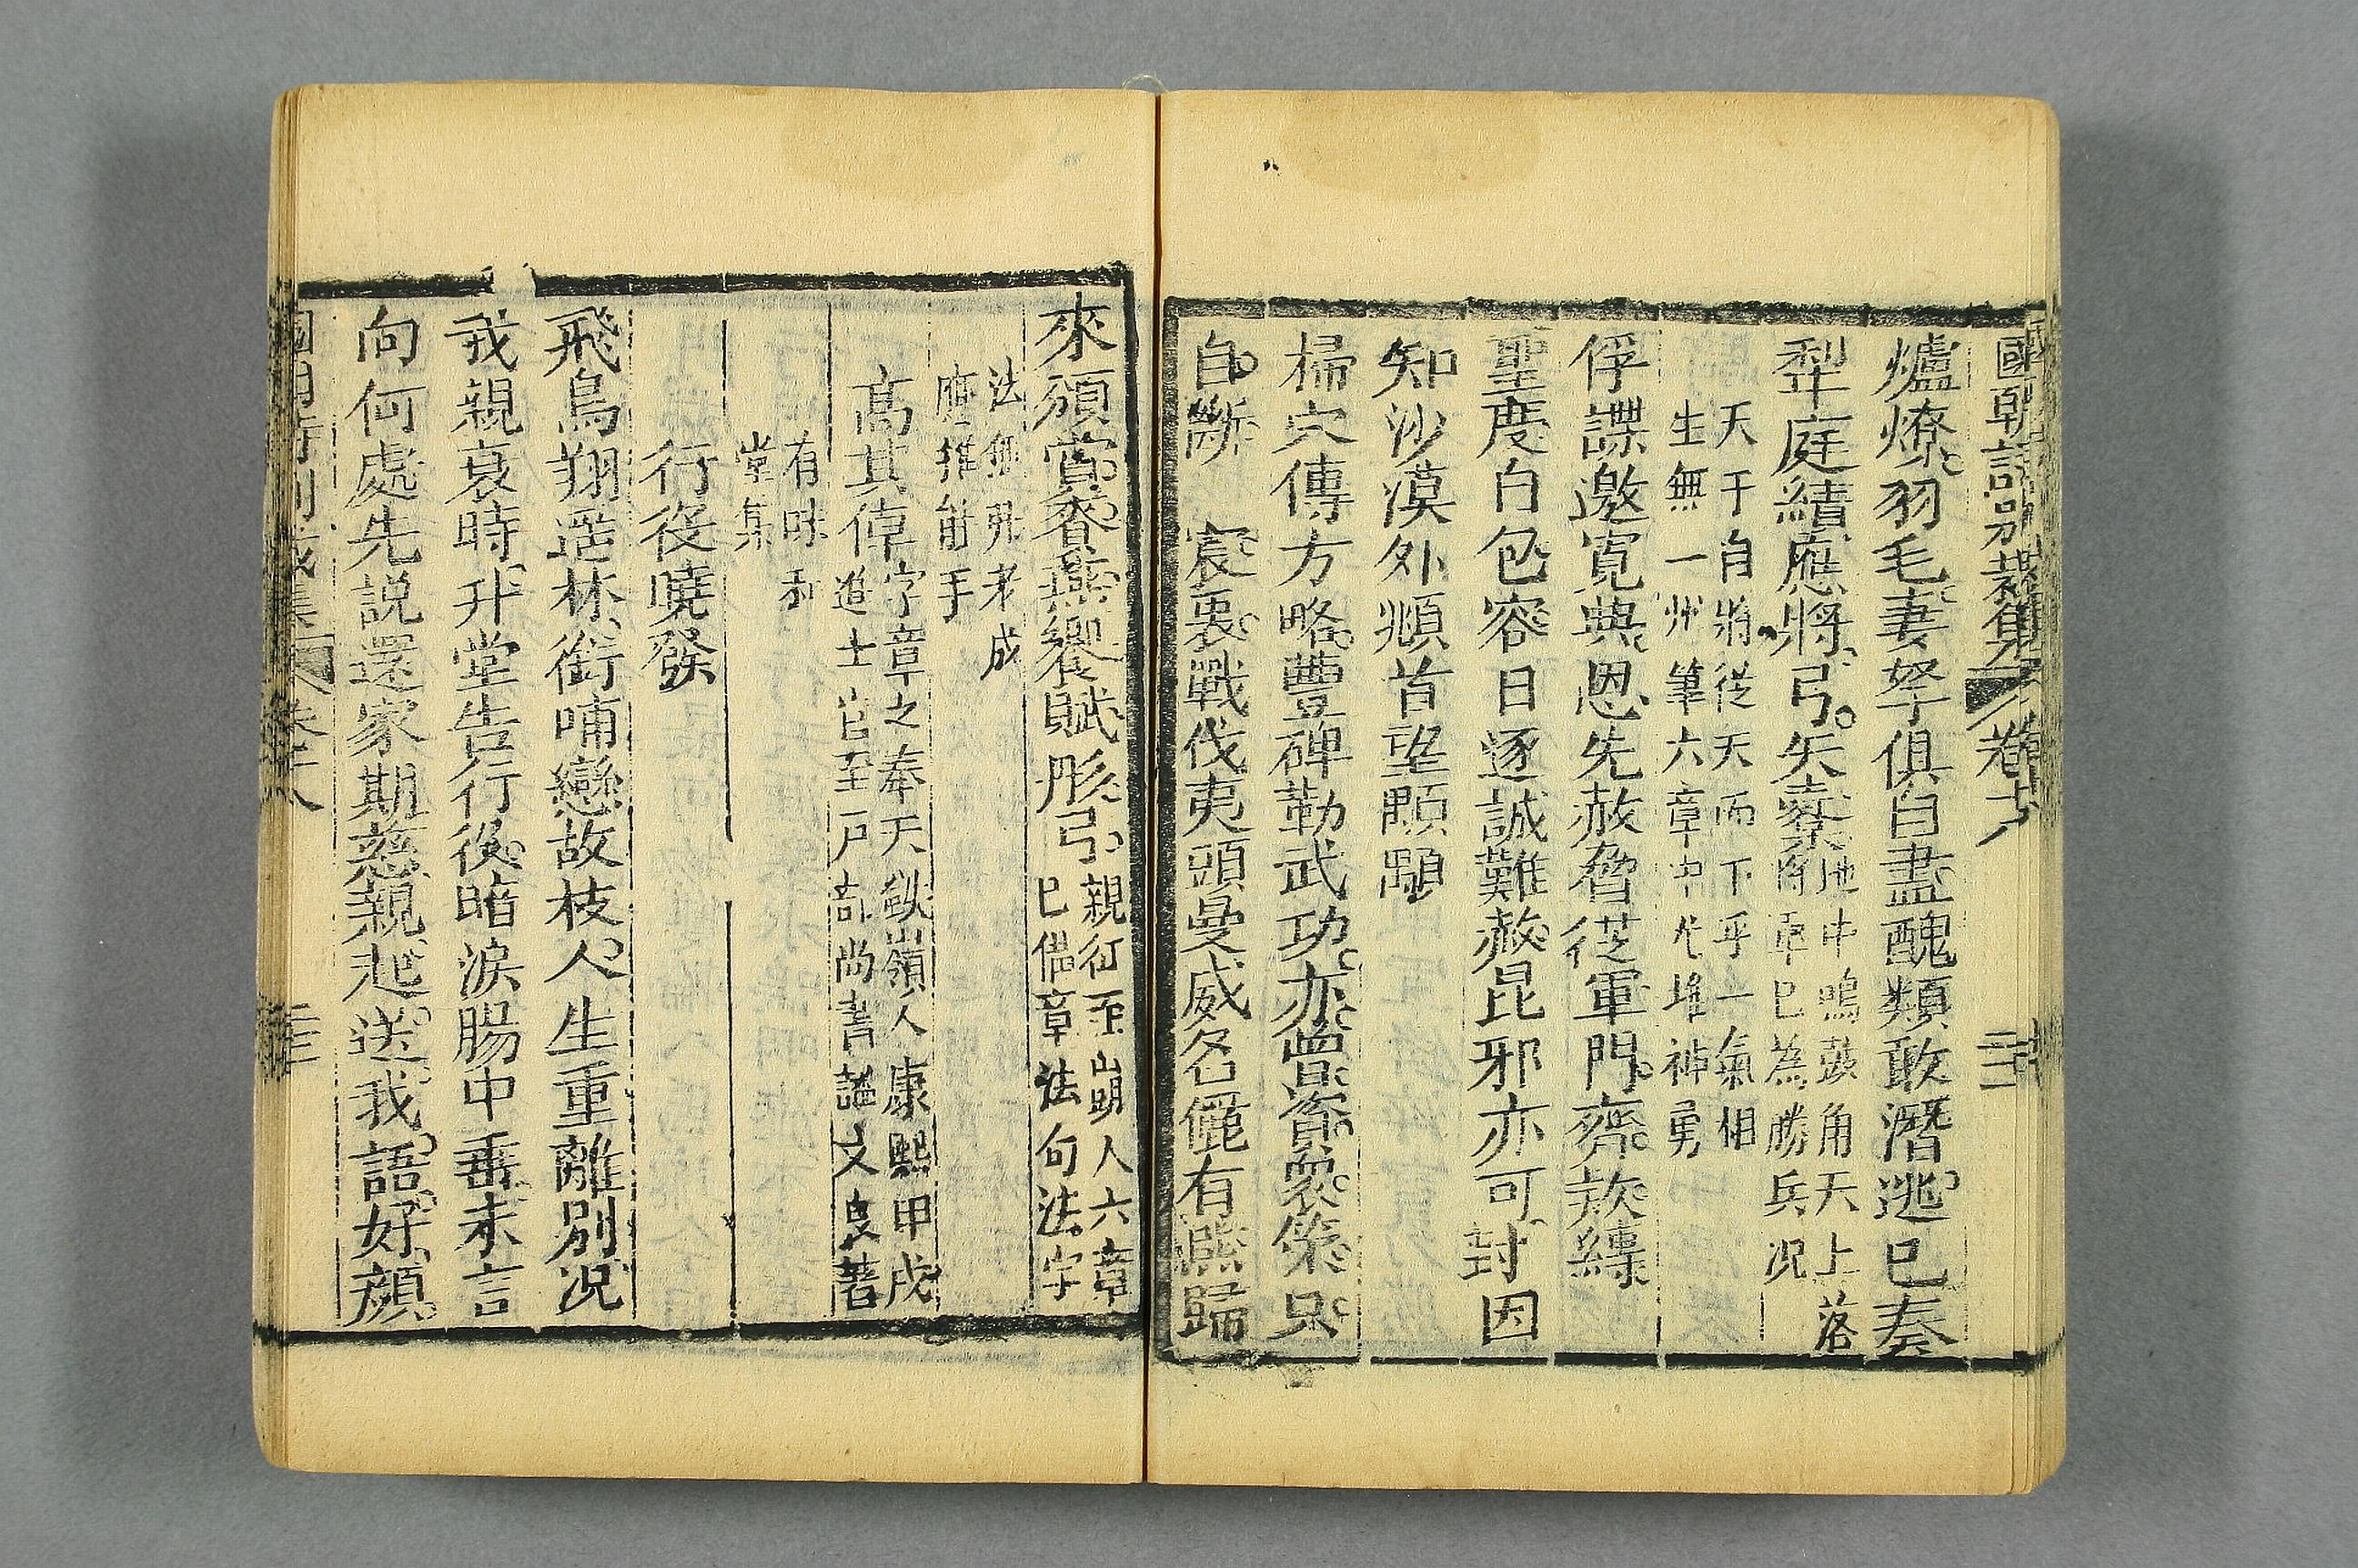 國朝詩別裁集 卷十八
爐燎羽毛妻孥俱自盡醜類敢潛逃已奏
犁庭績應將弓矢櫜
地中鳴鼓角天上落
將軍已為勝兵況
天于自將從天而下乎一氣相
生無一州筆六章中尤堆神勇
俘諜邀寬典恩先赦脅從軍門齊欵縛
聖慶白包容日逐誠難赦昆邪亦可封因
知沙漠外頫首望顒顒
掃穴傳方略豐碑勒武功亦曾資衆策只
自斷 宸衷戰伐夷頭曼威名儷有熊歸
來頒賞賚燕饗賦彤弓
親征玊崩人六章
已儘章法句法字
法無非老成
應推能手
高其倬
字章之奉天鐵嶺人康熙甲戌
進士官至戸部尚書諡文良著
有味和
堂集
行役曉發
飛鳥翔遥林銜哺戀故枝人生重離別况
我親衰時升堂告行役暗淚腸中垂未言
向何處先説還家期慈親起送我語好顔